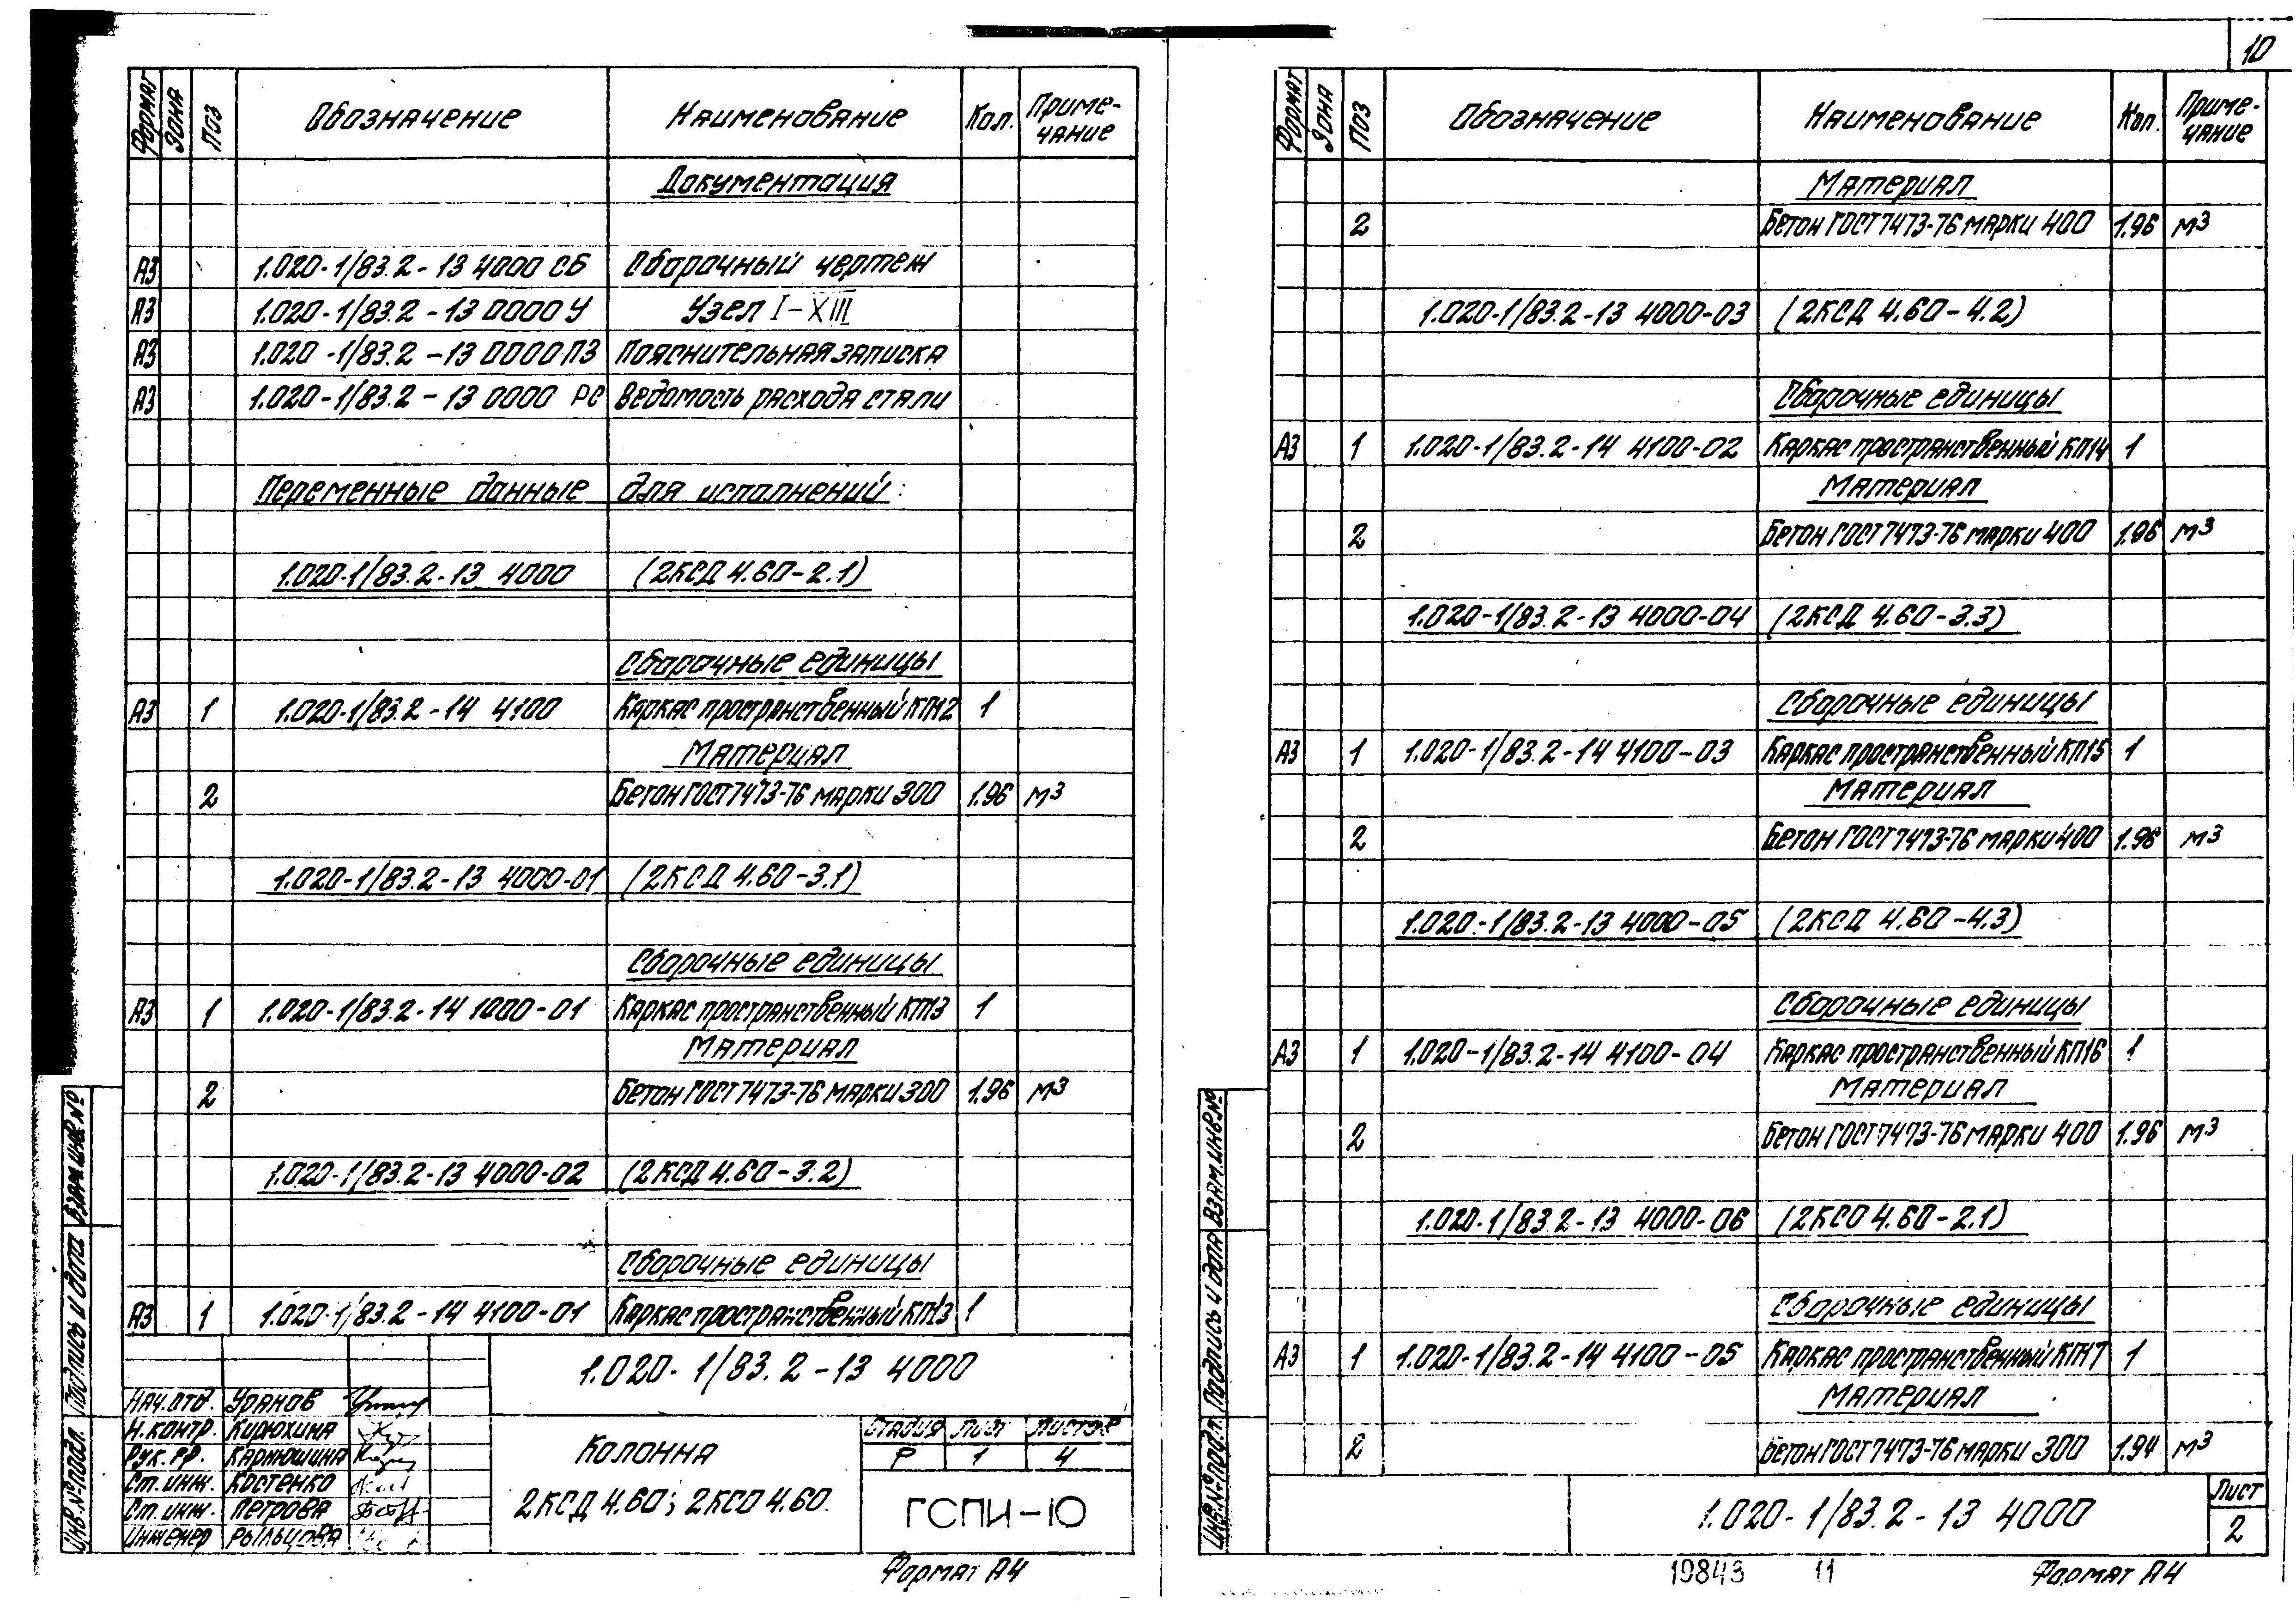 10
Формат Зона Поз Обозначение Наименование Кол. Приме-чание
Документация
А3 1.020-1/83.2-13 4000 СБ Сборочный чертеж
А3 1.020-1/83.2-13 0000 У Узел I-XIII
А3 1.020-1/83.2-13 0000 ПЗ Пояснительная записка
А3 1.020-1/83.2-13 0000 РС Ведомость расхода стали
Переменные данные для исполнений:
1.020-1/83.2-13 4000 (2КСД 4.60-2.1)
Сборочные единицы
А3 1 1.020-1/83.2-14 4100 Каркас пространственный КП12 1
Материал
2 Бетон ГОСТ 7473-76 марки 300 1.96 м3
1.020-1/83.2-13 4000-01 (2КСД 4.60-3.1)
Сборочные единицы
А3 1 1.020-1/83.2-14 1000-01 Каркас пространственный КП13 1
Материал
2 Бетон ГОСТ 7473-76 марки 300 1.96 м3
1.020-1/83.2-13 4000-02 (2КСД 4.60-3.2)
Сборочные единицы
А3 1 1.020-1/83.2-14 4100-01 Каркас пространственный КП13 1
1.020-1/83.2-13 4000
Нач.отд. Уранов
Н.контр. Кирюхина
Рук.гр. Карнюшина
Ст.инж. Костенко
Ст.инж. Петрова
Инженер Рыльцова
Колонна
2КСД 4.60; 2КСО 4.60.
Стадия Лист Листов
Р 1 4
ГСПИ-10
Формат А4
Инв.№ подл. Подпись и дата Взам.инв.№
Формат Зона Поз Обозначение Наименование Кол. Приме-чание
Материал
2 Бетон ГОСТ 7473-76 марки 400 1.96 м3
1.020-1/83.2-13 4000-03 (2КСД 4.60-4.2)
Сборочные единицы
А3 1 1.020-1/83.2-14 4100-02 Каркас пространственный КП14 1
Материал
2 Бетон ГОСТ 7473-76 марки 400 1.96 м3
1.020-1/83.2-13 4000-04 (2КСД 4.60-3.3)
Сборочные единицы
А3 1 1.020-1/83.2-14 4100-03 Каркас пространственный КП15 1
Материал
2 Бетон ГОСТ 7473-76 марки 400 1.96 м3
1.020-1/83.2-13 4000-05 (2КСД 4.60-4.3)
Сборочные единицы
А3 1 1.020-1/83.2-14 4100-04 Каркас пространственный КП16 1
Материал
2 Бетон ГОСТ 7473-76 марки 400 1.96 м3
1.020-1/83.2-13 4000-06 (2КСО 4.60-2.1)
Сборочные единицы
А3 1 1.020-1/83.2-14 4100-05 Каркас пространственный КП17 1
Материал
2 Бетон ГОСТ 7473-76 марки 300 1.94 м3
1.020-1/83.2-13 4000
Лист
2
Инв.№ подл. Подпись и дата Взам.инв.№
19843 11 Формат А4